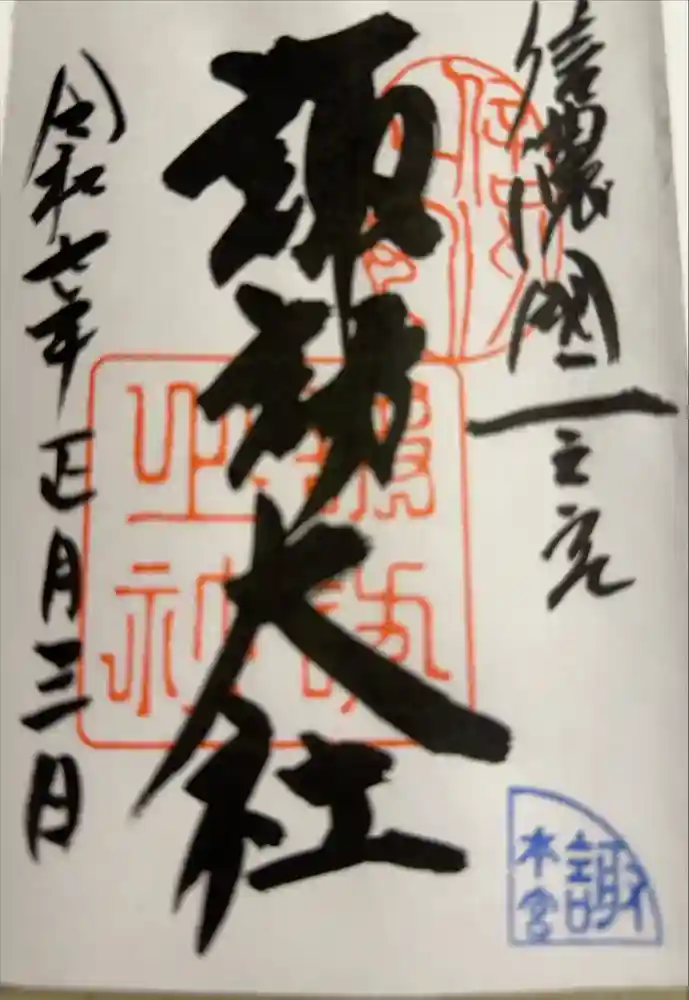 信濃國一之宮
諏訪大社
令和七年正月三日
諏訪
之神
諏
本宮